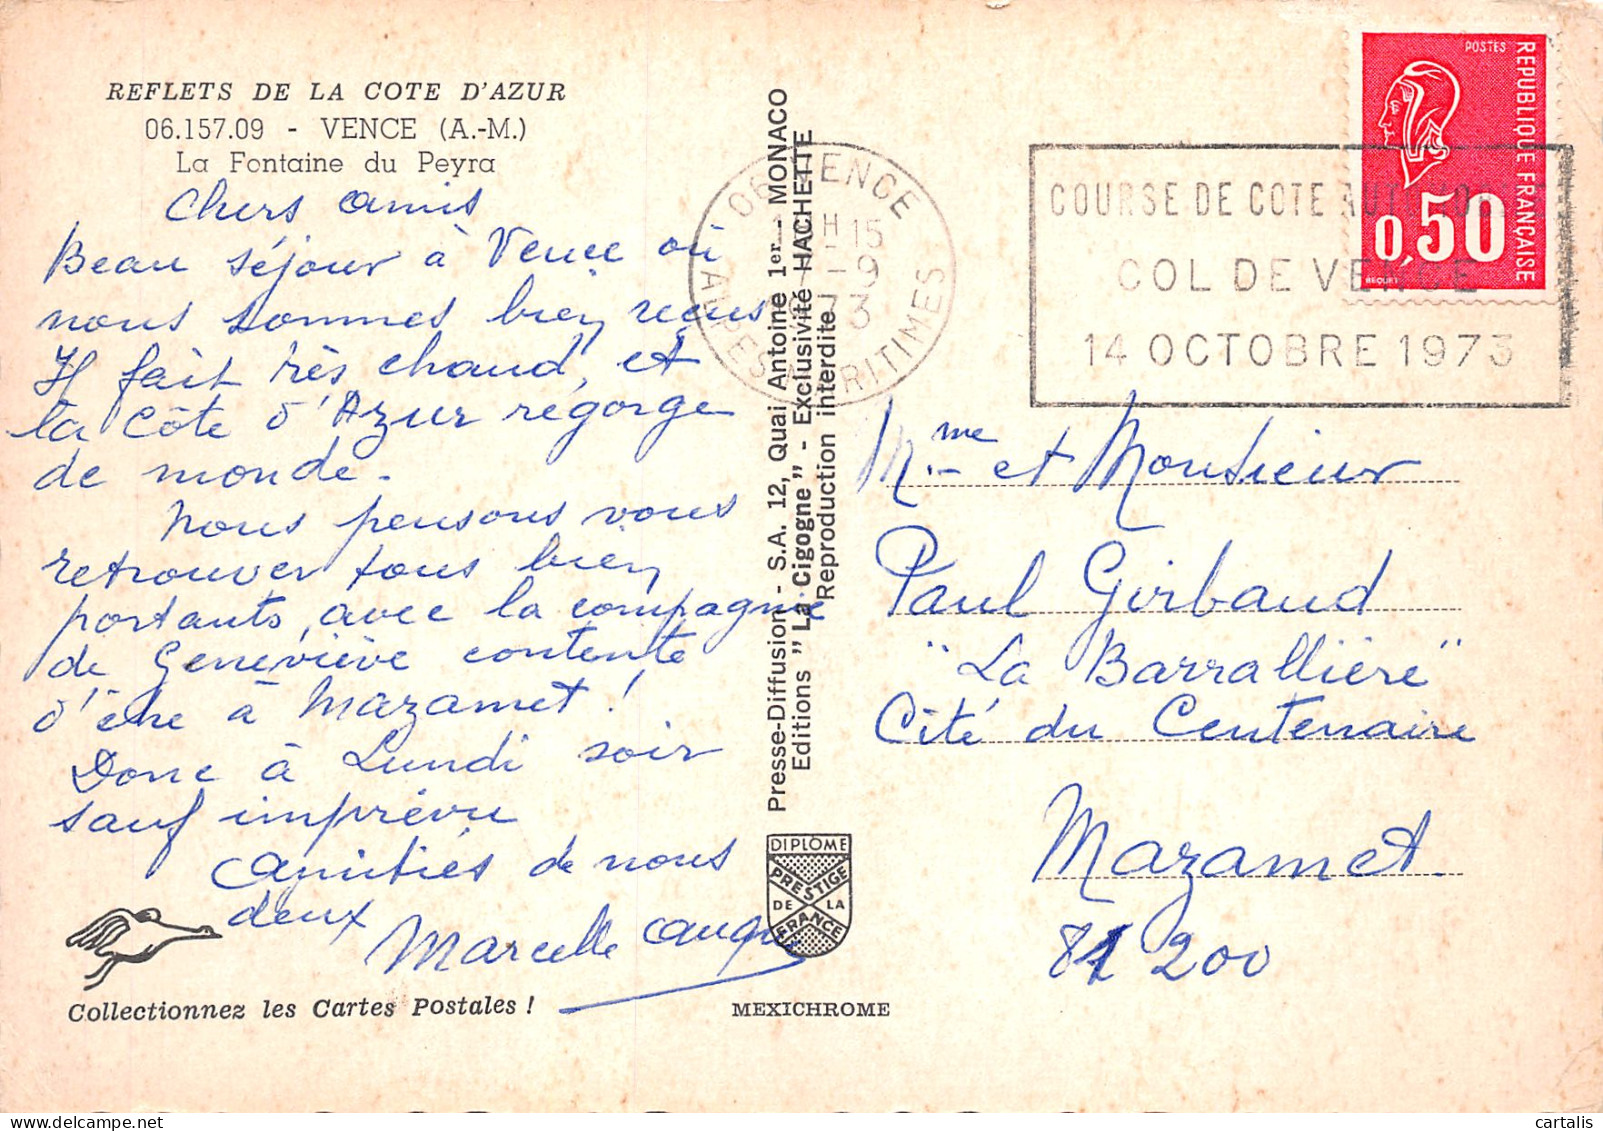 REFLETS DE LA COTE D'AZUR
06.157.09 - VENCE (A.-M.)
La Fontaine du Peyra
Chers amis
Beau séjour à Vence où
nous sommes bien reçus
Il fait très chaud, et
la Côte d'Azur regorge
de monde.
Nous pensons vous
retrouver tous bien
portants, avec la compagnie
de Geneviève contente
d'être à Mazamet !
Donc à Lundi soir
sauf imprévu
Amitiés de nous
deux
Marcelle
Collectionnez les Cartes Postales !
MEXICHROME
Presse-Diffusion - S.A. 12, Quai Antoine 1er - MONACO
Editions "La Cigogne" - Exclusivité HACHETTE
Reproduction interdite
DIPLÔME
PRESTIGE
DE LA
FRANCE
06 VENCE
H 15
-9
73
ALPES MARITIMES
COURSE DE COTE
COL DE VENCE
14 OCTOBRE 1973
POSTES
REPUBLIQUE FRANÇAISE
0,50
BEQUET
Mme et Monsieur
Paul Girbaud
"La Barrallière"
Cité du Centenaire
Mazamet
81200
cartalis